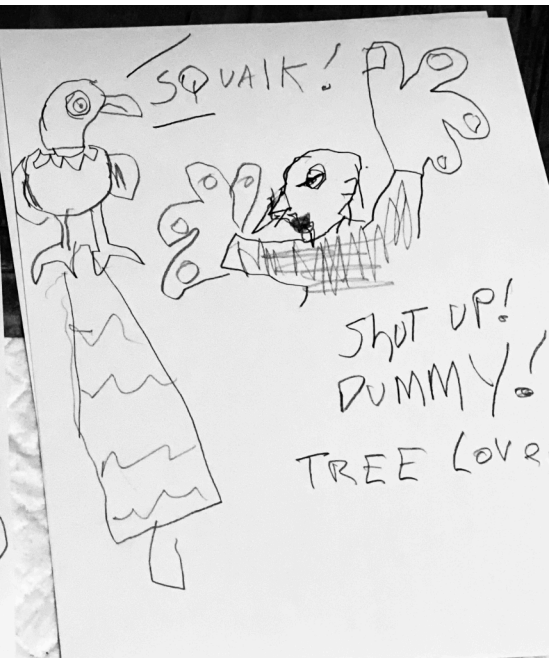 SQUAIK!
ShUT UP!
DUMMY!
TREE LOVE